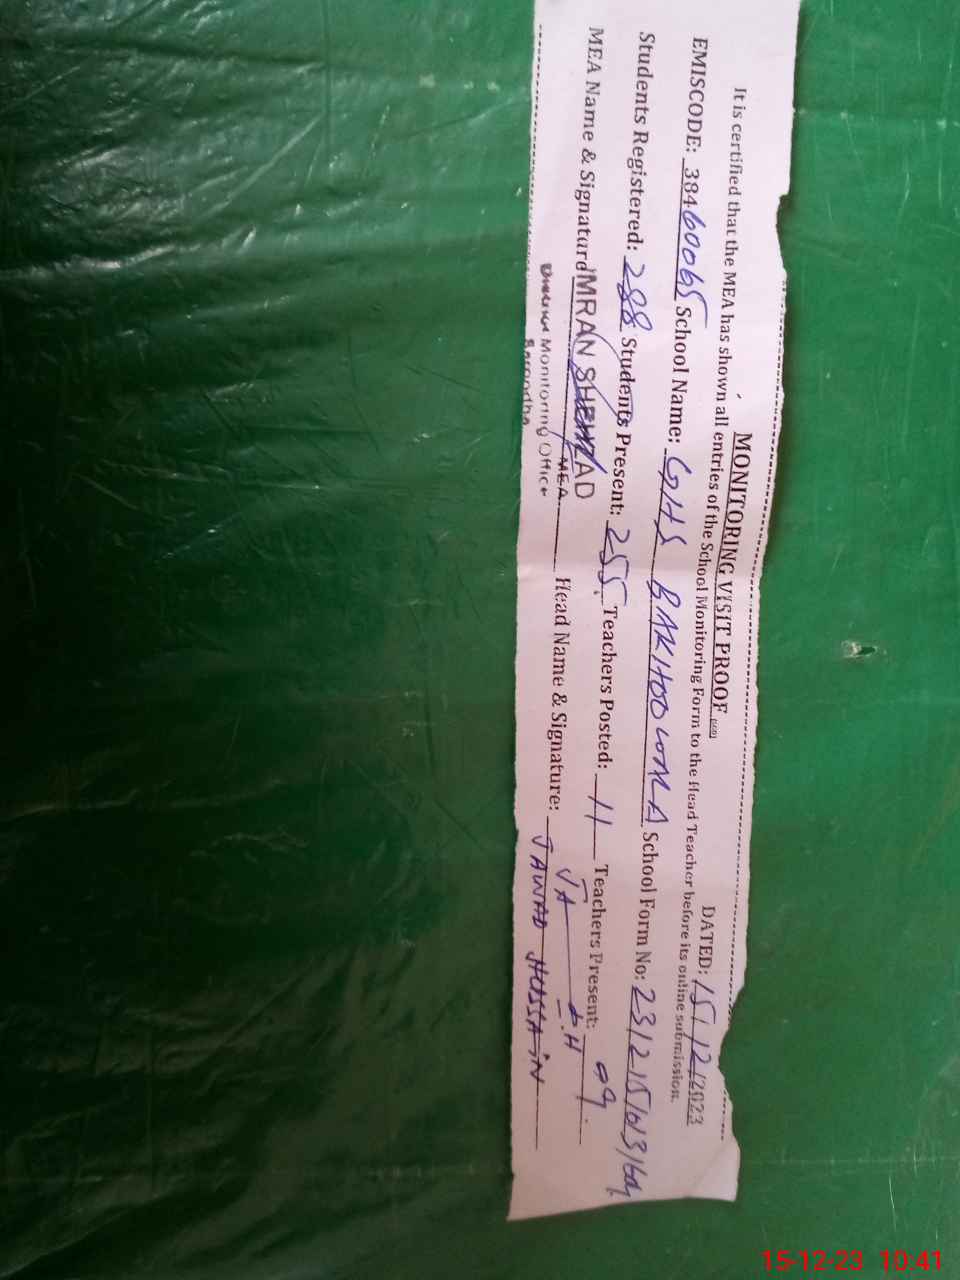 MONITORING VISIT PROOF
DATED: 15/12/2023
It is certified that the MEA has shown all entries of the School Monitoring Form to the Head Teacher before its online submission.
EMISCODE: 38460065 School Name: GHS BAKHOOWALA School Form No:
Students Registered: 288 Students Present: 255 Teachers Posted: 11 Teachers Present: 09
MEA Name & Signature IMRAN SHEHZAD Head Name & Signature: JAWAD HUSSAIN
MEA
Monitoring Office
15-12-23 10:41